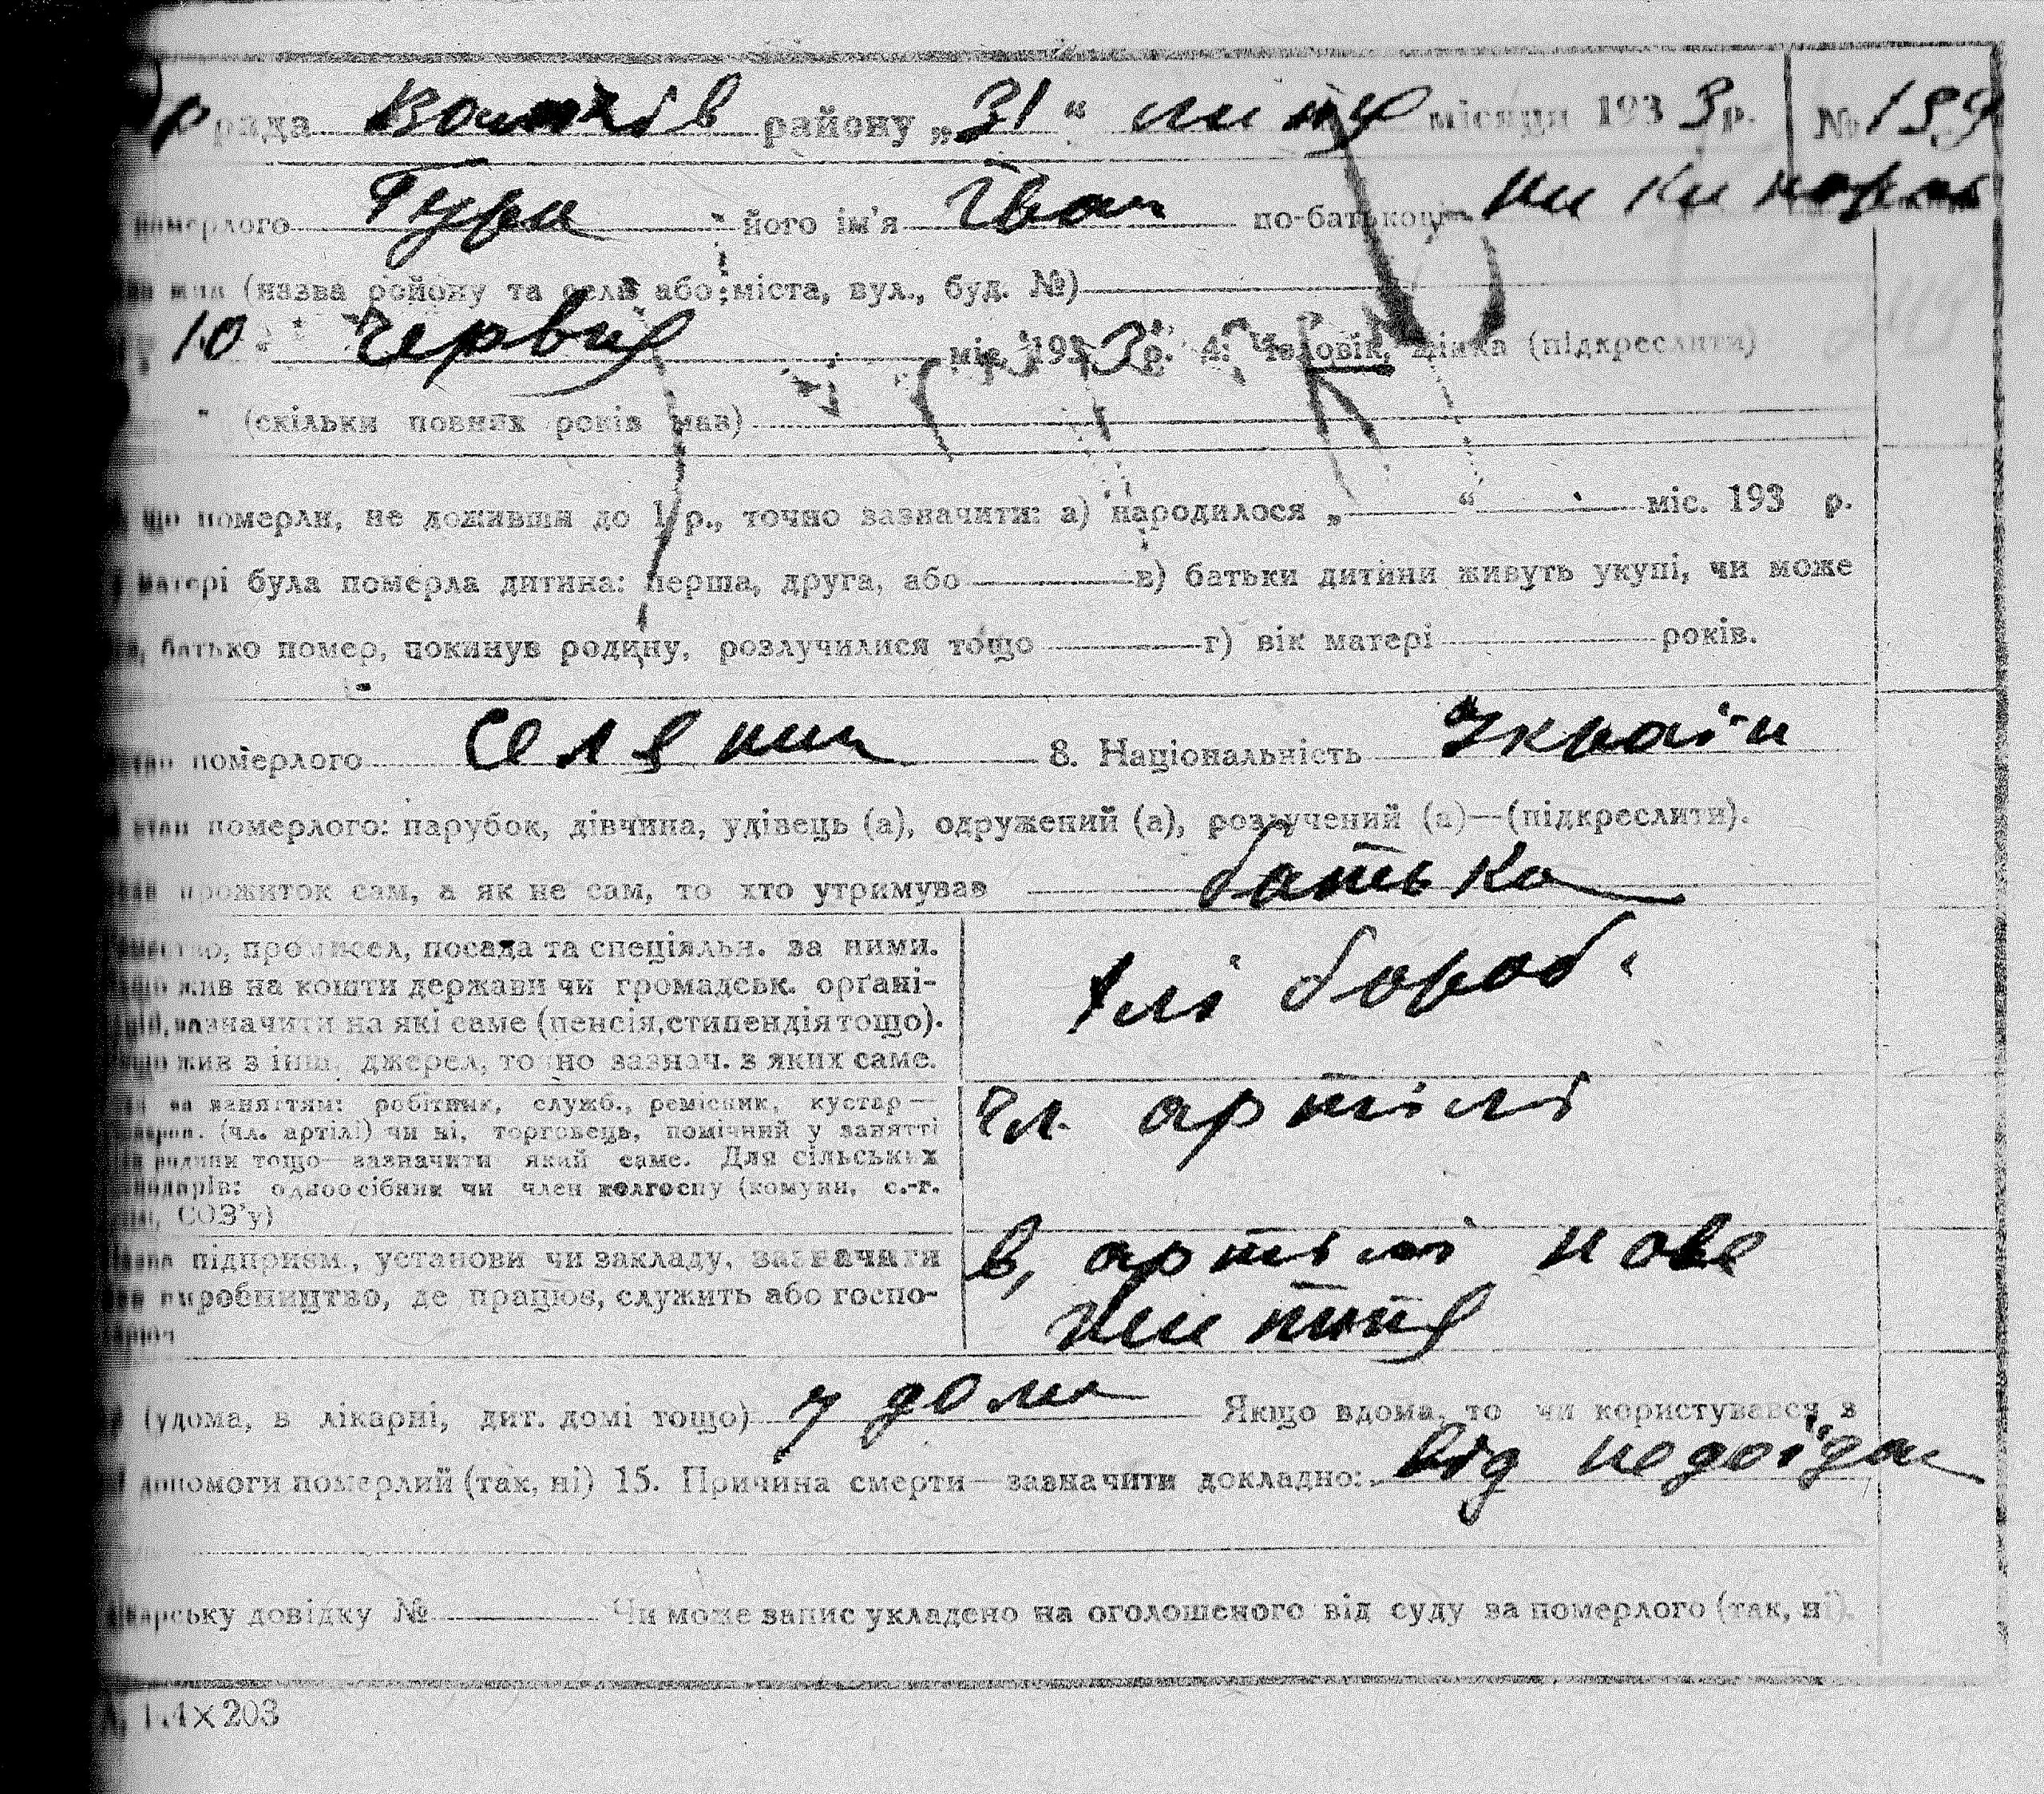 рада Вовчків району „31“ липня місяця 1933 р. № 139
померлого Гура його ім'я Іван по-батькові Никифоров
жив (назва району та села або міста, вул., буд. №)
10 Червня міс. 1933 р. 4. Чоловік, жінка (підкреслити)
(скільки повних років мав)
що померли, не доживши до 1 р., точно зазначити: а) народилося „ “ міс. 193 р.
матері була померла дитина: перша, друга, або в) батьки дитини живуть укупі, чи може
батько помер, покинув родину, розлучилися тощо г) вік матері років.
стан померлого Селянин 8. Національність Україн
стан померлого: парубок, дівчина, удівець (а), одружений (а), розлучений (а)—(підкреслити).
прожиток сам, а як не сам, то хто утримував батька
промисел, посада та спеціяльн. за ними.
жив на кошти держави чи громадськ. орґані-
зазначити на які саме (пенсія, стипендія тощо).
жив з інш. джерел, точно зазнач. з яких саме.
хлібороб.
за заняттям: робітник, служб., ремісник, кустар—
(чл. артілі) чи ні, торговець, помічний у занятті
родини тощо—зазначити який саме. Для сільських
господарів: одноосібник чи член колгоспу (комуни, с.-г.
СОЗ'у)
чл. артілі
підприєм., установи чи закладу, зазначити
виробництво, де працює, служить або госпо-
в, артілі нове
життя
(удома, в лікарні, дит. домі тощо) у дома Якщо вдома, то чи користувався з
допомоги померлий (так, ні) 15. Причина смерти—зазначити докладно: від недоїдан
лікарську довідку № Чи може запис укладено на оголошеного від суду за померлого (так, ні).
× 203